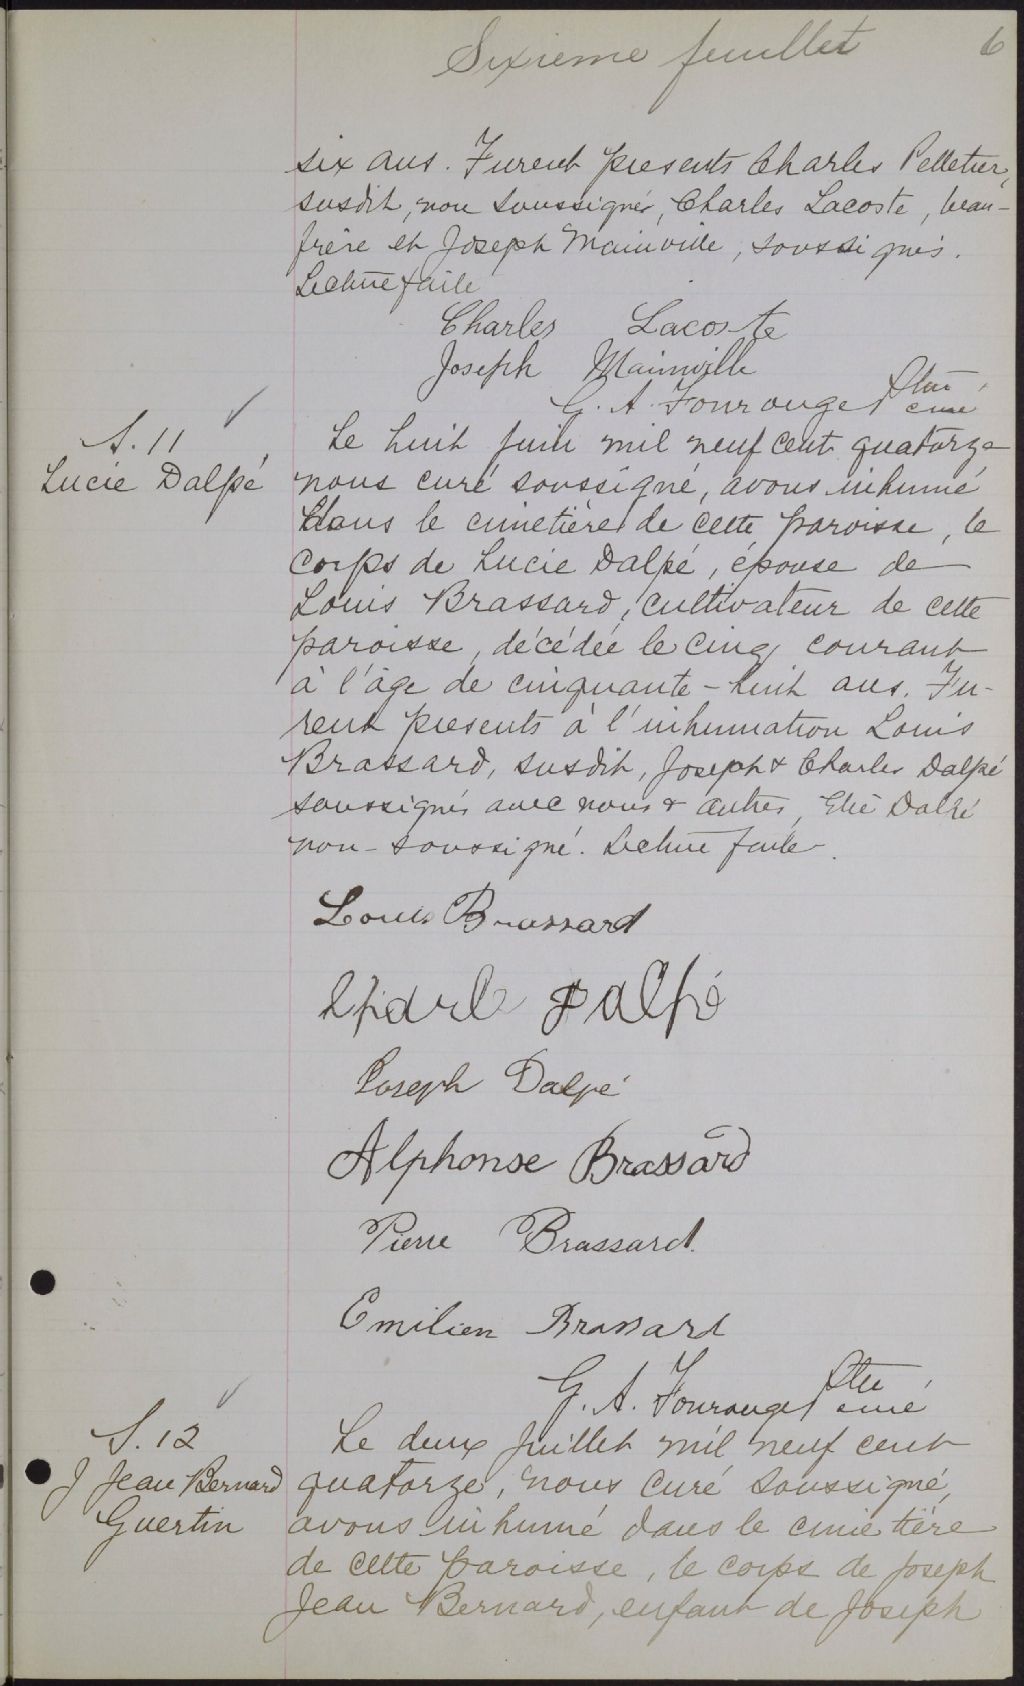 Sixieme feuillet 6
six ans. Furent presents Charles Pelletier,
susdit, non soussigné, Charles Lacoste, beau-
frère et Joseph Mainville, soussignés.
Lecture faite
Charles Lacoste
Joseph Mainville
G. A. Tourouge Ptre
curé
S. 11
Lucie Dalpé
Le huit Juin mil neuf cent quatorze
nous curé soussigné, avons inhumé
dans le cimetière de cette paroisse, le
corps de Lucie Dalpé, épouse de
Louis Brassard, cultivateur de cette
paroisse, décédée le cinq courant
à l'âge de cinquante-huit ans. Fu-
rent presents à l'inhumation Louis
Brassard, susdit, Joseph & Charles Dalpé
soussignés avec nous & autres, Elie Dalpé
non-soussigné. Lecture faite.
Louis Brassard
Charle Dalpé
Joseph Dalpé
Alphonse Brassard
Pierre Brassard.
Emilien Brassard
G. A. Tourouge Ptre
curé
S. 12
J Jean Bernard
Guertin
Le deux Juillet mil neuf cent
quatorze, nous curé soussigné,
avons inhumé dans le cimetière
de cette paroisse, le corps de Joseph
Jean Bernard, enfant de Joseph